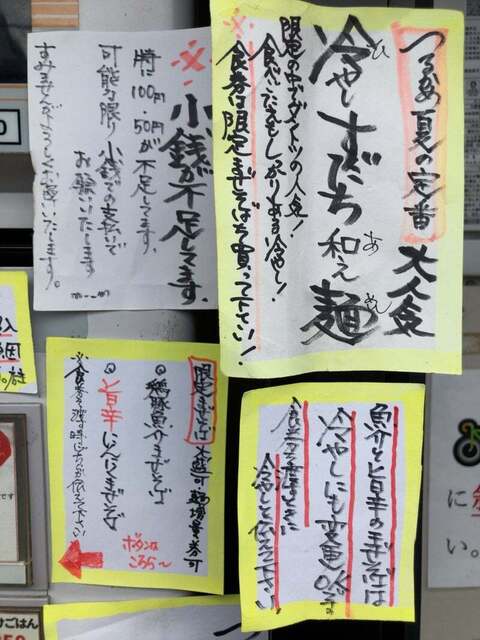 つるめ夏の定番 大人気
冷やしすだち和え麺
ひ
あ
めん
限定の中でダントツの人気！
食べごたえもしっかりある冷やし！
食券は限定まぜそばを買って下さい！
※小銭が不足してます。
特に100円・50円が不足してます
可能な限り小銭での支払いで
お願いいたします
すみませんがよろしくお願いいたします。
限定まぜそば
大盛可
◎鶏豚魚介まぜそば
◎旨辛いんにくまぜそば
※食券を渡す時にどちらか伝えて下さい
ボタンは
こちら〜
魚介と旨辛のまぜそばは
冷やしにも変更OKです
食券を渡すときに
冷やしと伝えて下さい
に
い。
けごはん